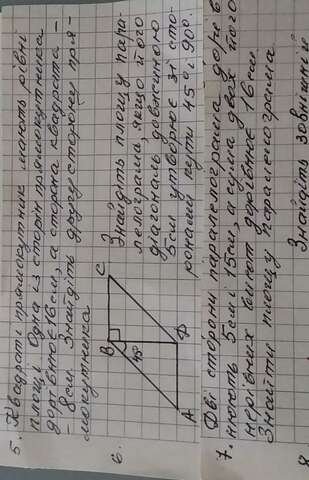 5. Квадрат і прямокутник мають рівні
площі. Одна із сторін прямокутника
дорівнює 16 см, а сторона квадрата –
– 8 см. Знайдіть другу сторону пря-
мокутника
6.
Знайдіть площу пара-
лелограма, якщо його
діагональ довжиною
5 см утворює зі сто-
ронами кути 45° і 90°
A B C D
45°
7. Дві сторони паралелограма дорів
нюють 5 см і 15 см, а сума двох його
нерівних висот дорівнює 16 см
Знайти площу паралелограма
8
Знайдіть зовнішній